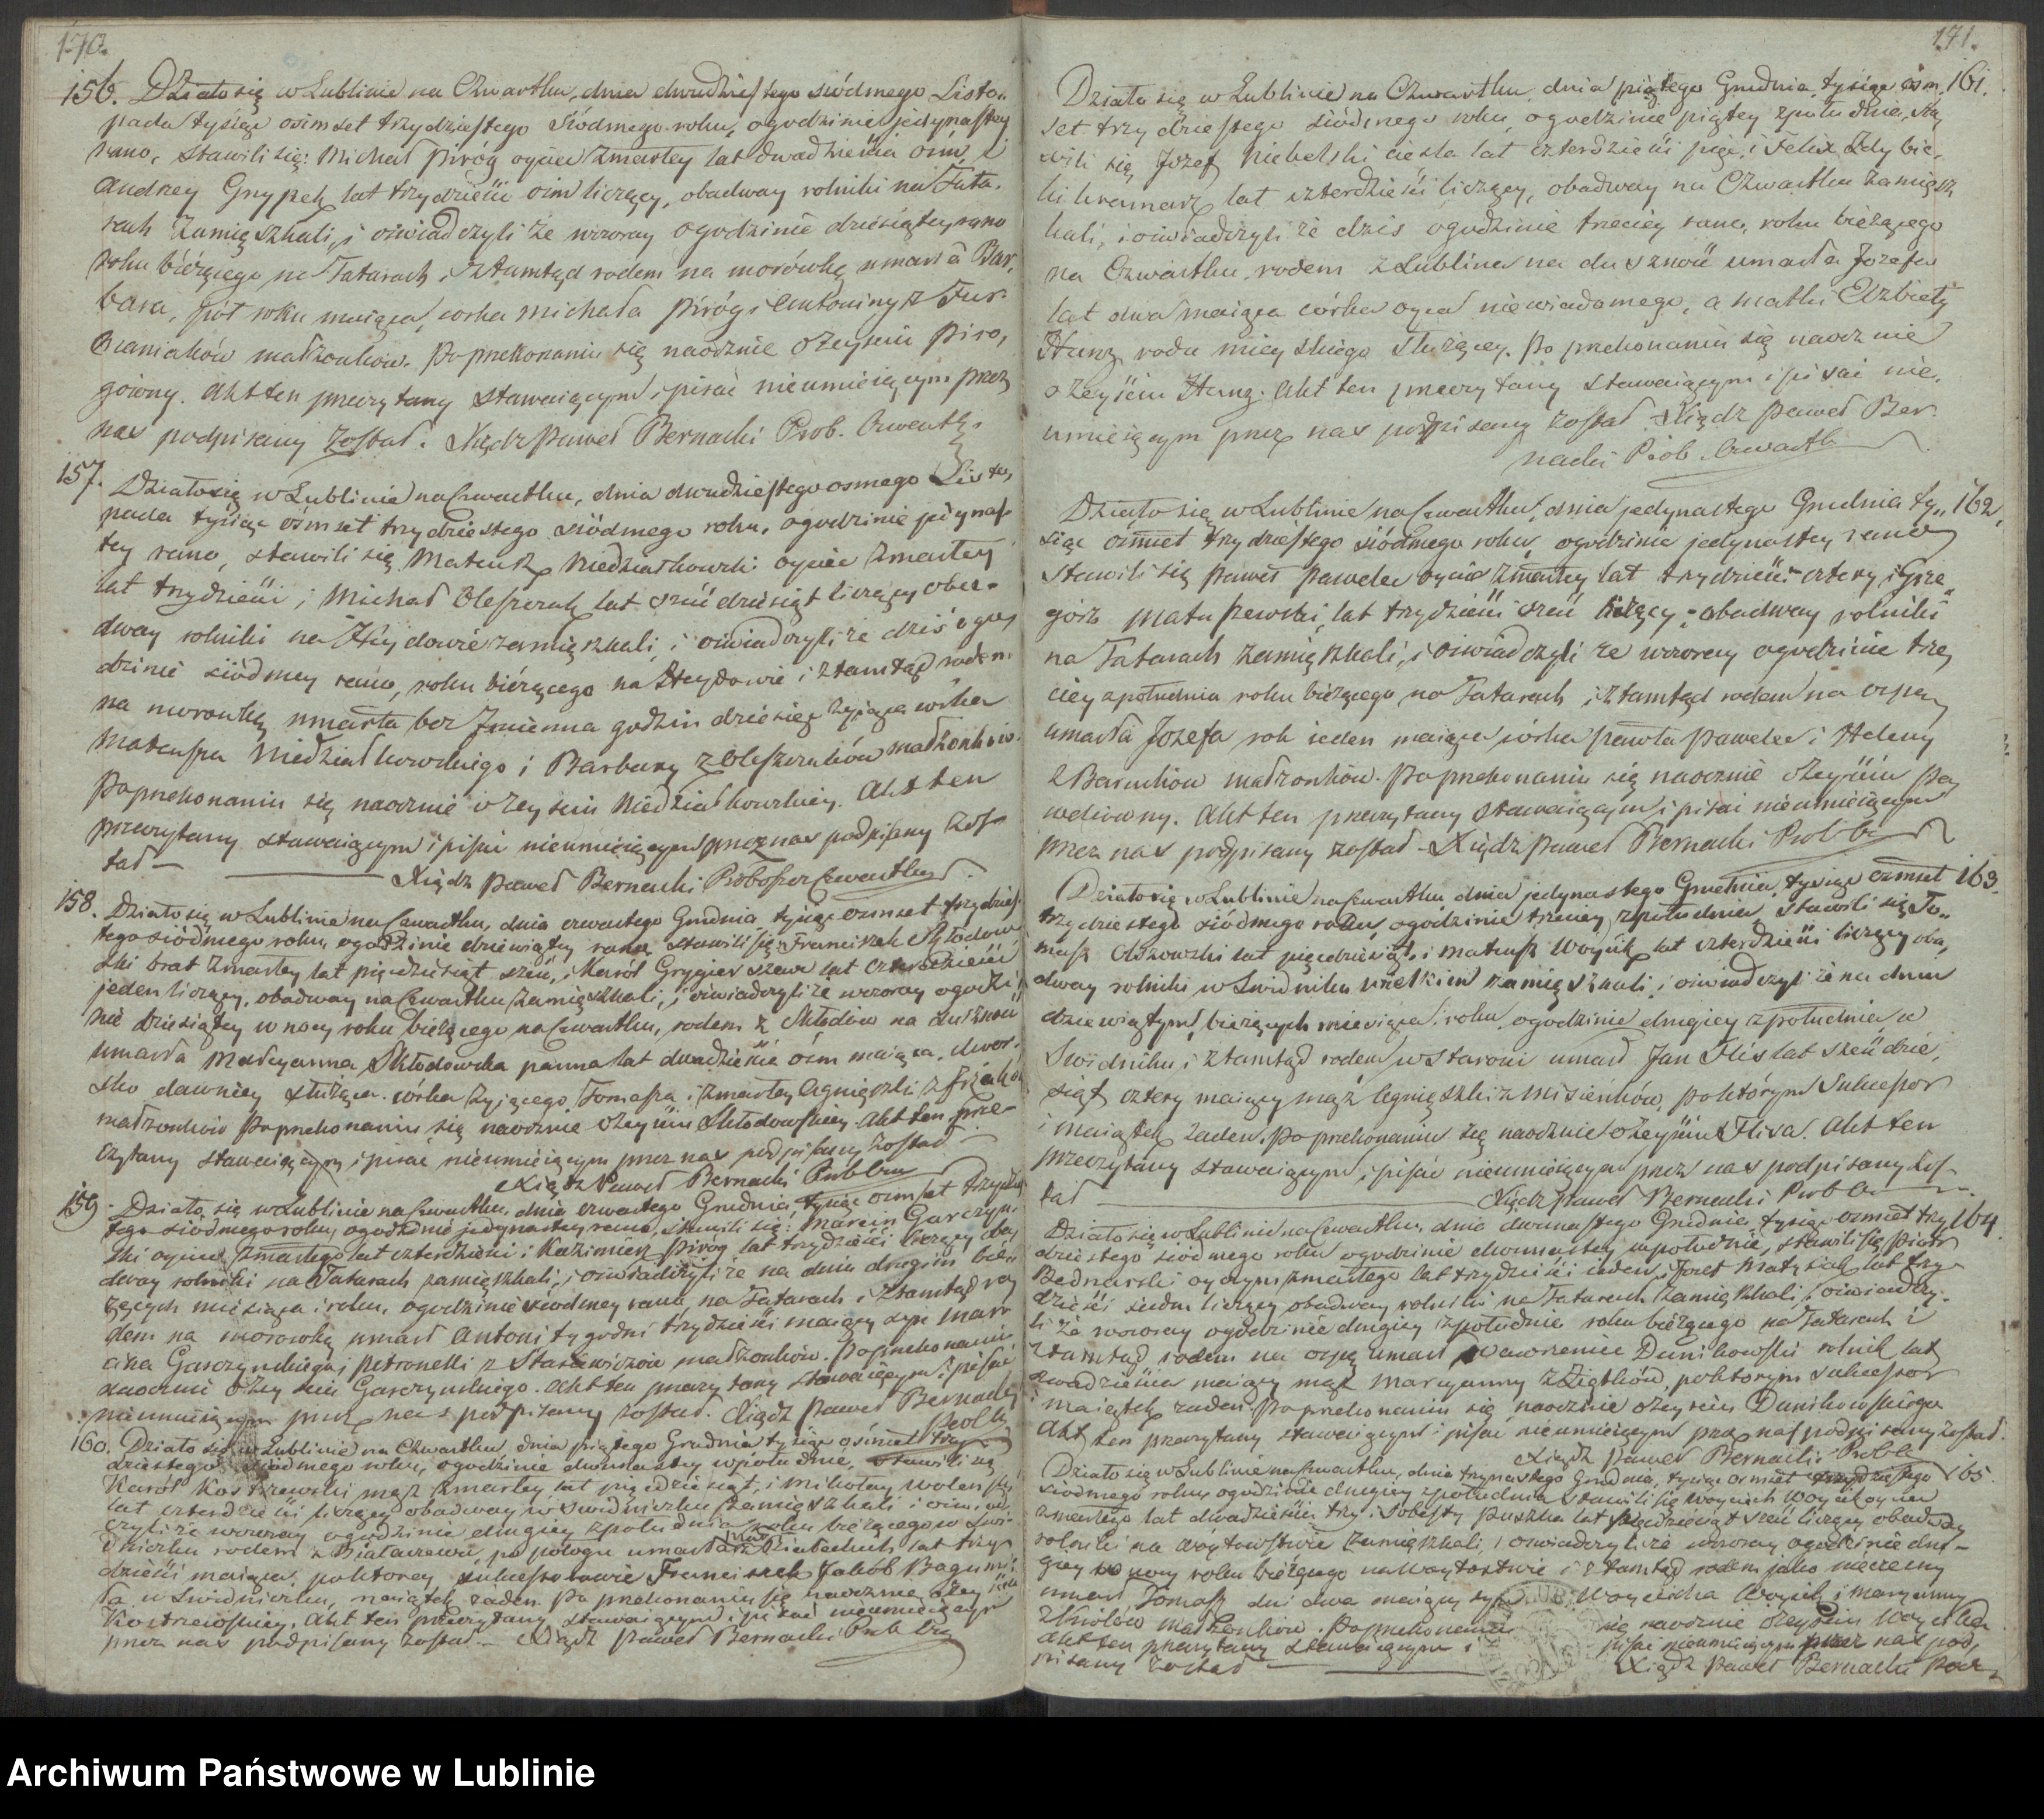 170.
156. Działo się w Lublinie na Czwartku, dnia dwudziestego siódmego Listo„
pada tysiąc osimset trzydziestego Siódmego roku, o godzinie jedynastey
rano, Stawili się: Michał Piróg oyciec zmarłey lat dwadzieścia ośm, i
Andrzey Grypek lat trzydzieści ośm liczący, obadway rolniki na Tata„
rach zamięszkali, i oświadczyli że wczoray o godzinie dziesiątey rano
roku bieżącego na Tatarach i ztamtąd rodem na morówkę umarła Bar„
bara, pół roku maiąca, córka Michała Piróg i Antoniny z Fur„
maniaków małżonków. Po przekonaniu się naocznie o zeyściu Piro„
gówny. Akt ten przeczytany stawaiącym i pisać nieumieiącym przez
nas podpisany został. Xiądz Paweł Bernacki Prob. Czwartk.
157. Działo się w Lublinie na Czwartku, dnia dwudziestego osmego Listo„
pada tysiąc ośmset trzydziestego siódmego roku, o godzinie jedynas„
tey rano, stawili się Mateusz Niedziałkowski oyciec zmarłey
lat trzydzieści i Michał Oleszczuk lat sześćdziesiąt liczący oba„
dway rolniki na Haydowie zamięszkali, i oświadczyli że dziś o go„
dzinie siódmey rano, roku bieżącego na Haydowie i ztamtąd rodem
na morówkę umarła bez Imienna godzin dziesięć żyjąca córka
Mateusza Niedziałkowskiego i Barbary z Oleszczuków małżonków.
Po przekonaniu się naocznie o zeyściu Niedziałkowskiey. Akt ten
przeczytany stawaiącym i pisać nieumieiącym przez nas podpisany zos„
tał — Xiądz Paweł Bernacki Proboszcz Czwartku
158. Działo się w Lublinie na Czwartku, dnia czwartego Grudnia tysiąc osmset trzydzies„
tego siódmego roku, o godzinie dziewiątey rano stawili się: Franciszek Skłodow„
ski brat zmarłey lat pięćdziesiąt sześć, i Karól Grygiev szewc lat czterdzieści
jeden liczący, obadway na Czwartku zamięszkali, i oświadczyli że wczoray o godzi„
nie dziesiątey w nocy roku bieżącego na Czwartku, rodem z Skłodów na duszność
umarła Maryanna Skłodowska panna lat dwadzieście ośm maiąca, dwor„
sko dawniey służąca córka żyjącego Tomasza i zmarłey Agnięszki z
małżonków Po przekonaniu się naocznie o zeyściu Skłodowskiey. Akt ten prze„
czytany stawaiącym i pisać nieumieiącym przez nas podpisany został —
Xiądz Paweł Bernacki Prob Czw
159. Działo się w Lublinie na Czwartku, dnia czwartego Grudnia, tysiąc osmset trzydzies„
tego siódmego roku, o godzinie jedynastey rano, stawili się: Marcin Garczyń„
ski oyciec zmarłego lat czterdzieści i Kazimierz Piróg lat trzydzieści liczący oba„
dway rolniki na Tatarach zamięszkali, i oświadczyli że na dniu drugim bie„
żących miesiąca i roku, o godzinie siódmey rano na Tatarach i ztamtąd ro„
dem na morowkę umarł Antoni tygodni trzydzieści maiący syn Mar„
cina Garczynskiego i Petronelli z Staniewiczów małżonków. Po przekonaniu
naocznie o zeyściu Garczynskiego. Akt ten przeczytany stawaiącym i pisać
nieumieiącym przez nas podpisany został. Xiądz Paweł Bernacki
Prob Cz
160. Działo się w Lublinie na Czwartku dnia piątego Grudnia tysiąc ośmset trzy„
dziestego siódmego roku, o godzinie dwunastey w południe, stawili się
Karól Kostrzewski mąż zmarłey lat pięćdziesiąt, i Mikołay Wolenski
lat czterdzieści liczący obadway w Swidniczku zamięszkali i oświad„
czyli że wczoray o godzinie drugiey z południa roku bieżącego w Swi„
dniczku rodem z po połogu umarła lat trzy„
dzieści maiąca, po ktorey sukcesorowie Franciszek Jakób
w Swidniczku, maiątek żaden. Po przekonaniu się naocznie o zeyściu
Kostrzewskiey. Akt ten przeczytany stawaiącym i pisać nieumieiącym
przez nas podpisany został.— Xiądz Paweł Bernacki Prob Czw
171.
Działo się w Lublinie na Czwartku, dnia piątego Grudnia, tysiąc ośm„ 161.
set trzydziestego siódmego roku, o godzinie piątey z południa, sta„
wili się Jozef Niebelski cieśla lat czterdzieści pięć, i Felix Zdybic„
ki kramarz lat czterdzieści liczący, obadway na Czwartku zamięsz„
kali, i oświadczyli że dziś o godzinie trzeciey rano, roku bieżącego
na Czwartku, rodem z Lublina na duszność umarła Jozefa
lat dwa maiąca córka oyca niewiadomego, a matki Elżbiety
Hunz rodu mieyskiego służącey. Po przekonaniu się naocznie
o zeyściu Hunz. Akt ten przeczytany stawaiącym i pisać nie„
umieiącym przez nas podpisany został. Xiądz Paweł Ber„
nacki Prob. Czwartk
Działo się w Lublinie na Czwartku, dnia jedynastego Grudnia ty„ 162.
siąc ośmset trzydziestego siódmego roku, o godzinie jedynastey rano
Stawili się Paweł Pawelec oyciec zmarłey lat trzydzieści cztery i Grze„
górz Matuszewski, lat trzydzieści sześć liczący, obadway rolniki
na Tatarach zamięszkali, i oświadczyli że wczoray o godzinie trze„
ciey z południa roku bieżącego, na Tatarach i ztamtąd rodem na ospę
umarła Jozefa rok ieden maiąca córka Pawła Pawelca i Heleny
z Baruchów małżonków. Po przekonaniu się naocznie o zeyściu Pa„
welcówny. Akt ten przeczytany stawaiącym i pisać nieumieiącym
przez nas podpisany został - Xiądz Paweł Bernacki Prob Cz
Działo się w Lublinie na Czwartku dnia jedynastego Grudnia, tysiąc ośmset 163.
trzydziestego siódmego roku, o godzinie trzeciey z południa stawili się To„
masz Olszowski lat pięćdziesiąt, i Mateusz Woycik lat czterdzieści liczący oba„
dway rolniki w Swidniku wielkim zamięszkali, i oświadczyli że na dniu
dziewiątym bieżących miesiąca i roku, o godzinie drugiey z południa w
Swidniku i ztamtąd rodem w starości umarł Jan Flis lat sześćdzie„
siąt cztery maiący mąż Agnięszki z Misienków, po którym sukcessor
i maiątek żaden. Po przekonaniu się naocznie o zeyściu Flisa. Akt ten
przeczytany stawaiącym i pisać nieumieiącym przez nas podpisany zos„
tał — Xiądz Paweł Bernacki Prob Cz
Działo się w Lublinie na Czwartku, dnia dwunastego Grudnia, tysiąc osmset trzy„ 164.
dziestego siódmego roku o godzinie dwunastey w południe, stawili się Piotr
Bednarski oyczym zmarłego lat trzydzieści ieden, i Józef Matysiak lat trzy„
dzieści siedm liczący obadway rolniki na Tatarach zamięszkali, i oświadczy„
li że wczoray o godzinie drugiey z południa roku bieżącego na Tatarach i
ztamtąd rodem na ospę umarł Wawrzeniec Danikowski rolnik lat
dwadzieścia maiący mąż Maryanny z Ziętków, po ktorym sukcessor
i maiątek żaden. Po przekonaniu się naocznie o zeyściu Danikowskiego
Akt ten przeczytany stawaiącym i pisać nieumieiącym przez nas podpisany został.
Xiądz Paweł Bernacki Prob Cz
Działo się w Lublinie na Czwartku, dnia trzynastego Grudnia, tysiąc osmset trzydziestego 165.
siódmego roku, o godzinie drugiey z południa stawili się Woyciech Woycik oyciec
zmarłego lat dwadzieścia trzy i Sobesty Puszka lat pięćdziesiąt sześć liczący obadway
rolniki na Wóytowstwie zamięszkali, i oświadczyli że wczoray o godzinie dru„
giey w nocy roku bieżącego na Woytostwie i ztamtąd rodem jako
umarł Tomasz dni dwa maiący syn Woyciecha Woycik i Maryanny
z Królów małżonków. Po przekonaniu się naocznie o zeyściu Woycika
Akt ten przeczytany stawaiącym i pisać nieumieiącym przez nas pod„
pisany został — Xiądz Paweł Bernacki Prob
Archiwum Państwowe w Lublinie